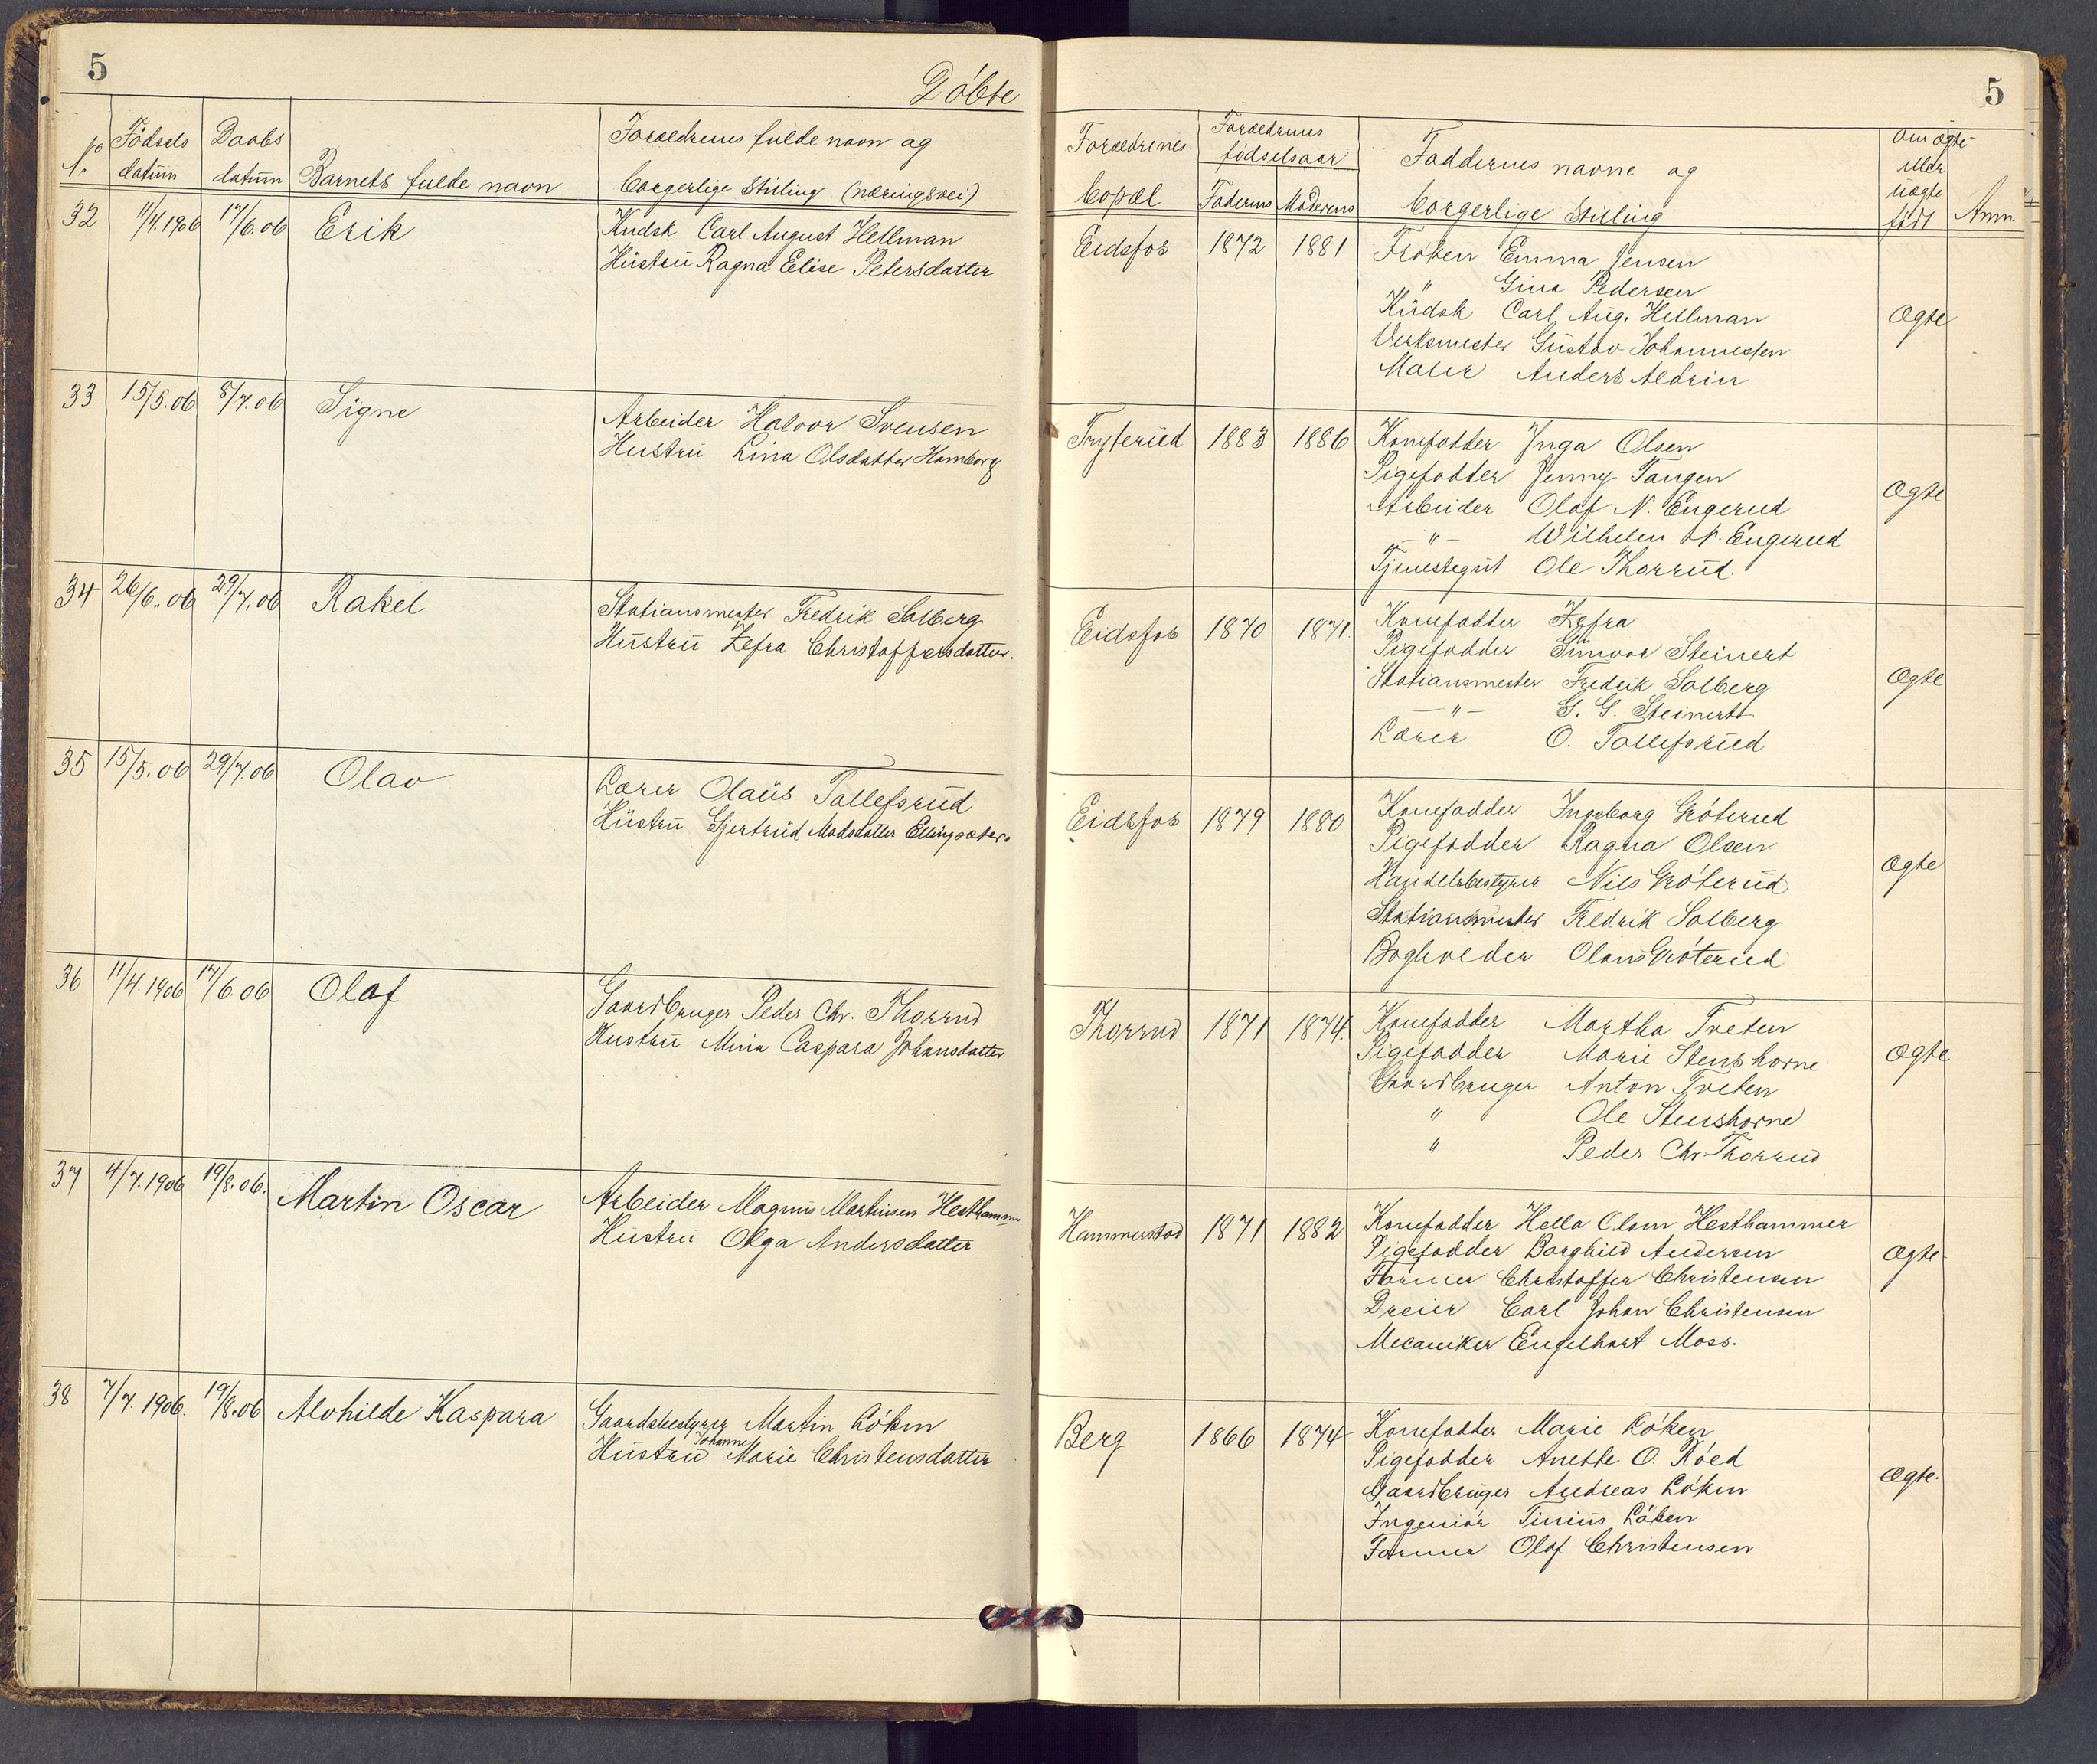 5
Döbte
No
Födsels
datum
Daabs
datum
Barnets fulde navn
Foraeldrenes fulde navn og
borgerlige Stilling (næringsvei)
32
11/4.1906
17/6.06
Erik
Kudsk Carl August Hellman
Hustru Ragna Elise Petersdatter
33
15/5.06
8/7.06
Signe
Arbeider Halvor Svensen
Hustru Lina Olsdatter Hamborg
34
26/6.06
29/7.06
Rakel
Stationsmester Fredrik Solberg
Hustru Zefra Christoffersdatter.
35
15/5.06
29/7.06
Olav
Lærer Olaus Tollefsrud
Hustru Gjertrud Madsdatter Ellingsæter.
36
11/4.1906
17/6.06
Olaf
Gaardbruger Peder Chr. Thorrud
Hustru Mina Caspara Johansdatter
37
4/7.1906
19/8.06.
Martin Oscar
Arbeider Magnus Martinsen Hesthammer
Hustru Olga Andersdatter
38
7/7.1906.
19/8.06
Alvhilde Kaspara
Gaardsbestyrer Martin Löken
Johanne
Hustru Marie Christensdatter
5
Foraeldrenes
bopæl
Foraeldrenes
födselsaar
Faderens
Moderens
Faddernes navne og
borgerlige Stilling
om ægte
eller
uægte
födt
Anm
Eidsfos
1872
1881
Fröken Emma Jensen
" Gina Pedersen
Kudsk Carl Aug. Hellman
Verksmester Gustav Johannesen
Maler Anders Aldrin
Ægte
Tryterud
1883
1886
Konefadder Inga Olsen
Pigefadder Jenny Tangen
Arbeider Olaf N. Engerud
—"— Wilhelm N. Engerud
Tjenestegut Ole Thorrud.
Ægte
Eidsfos
1870
1871
Konefadder Zefra
Pigefadder Gunvor Steinert
Stationsmester Fredrik Solberg
—"— G. G. Steinert
Lærer O. Tollefsrud
Ægte
Eidsfos
1879
1880
Konefadder Ingeborg Gröterud
Pigefadder Ragna Olsen
Handelsbestyrer Nils Gröterud
Stationsmester Fredrik Solberg
Bogholder Olaus Gröterud
Ægte
Thorrud
1871
1874.
Konefadder Martha Tveten
Pigefadder Marie Stenshorne
Gaardbruger Anton Tveten
" Ole Stenshorne
" Peder Chr. Thorrud
Ægte
Hammerstad
1871
1882
Konefadder Hella Olsen Hesthammer
Pigefadder Borghild Andersen
Former Christoffer Christensen
Dreier Carl Johan Christensen
Mecaniker Engelhart Moss.
Ægte
Berg
1866
1874
Konefadder Marie Löken
Pigefadder Anette O. Röed
Gaardbruger Andreas Löken
Ingeniör Tinius Löken
Former Olaf Christensen
Ægte.